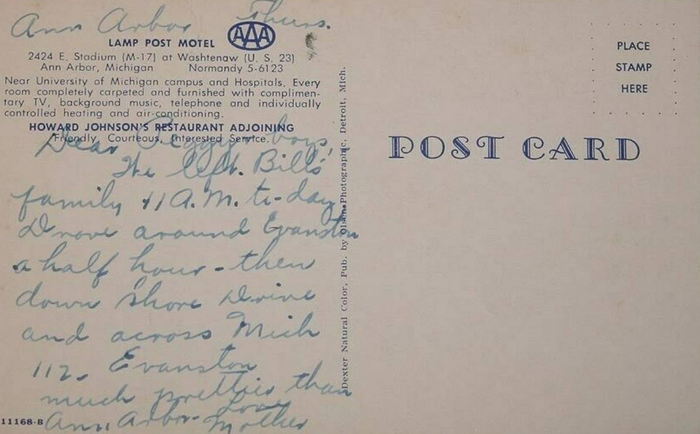 Ann Arbor Thurs.
LAMP POST MOTEL AAA
2424 E. Stadium (M-17) at Washtenaw (U. S. 23)
Ann Arbor, Michigan Normandy 5-6123
Near University of Michigan campus and Hospitals. Every
room completely carpeted and furnished with complimen-
tary TV, background music, telephone and individually
controlled heating and air-conditioning.
HOWARD JOHNSON'S RESTAURANT ADJOINING
Friendly, Courteous, Interested Service.
Dear boys,
We left Bill's
family 11 A.M. to-day
Drove around Evanston
a half hour - then
down Shore Drive
and across Mich
112. Evanston
much prettier than
Ann Arbor. Love
Mother
11168-B
Dexter Natural Color, Pub. by Photographic, Detroit, Mich.
POST CARD
PLACE
STAMP
HERE